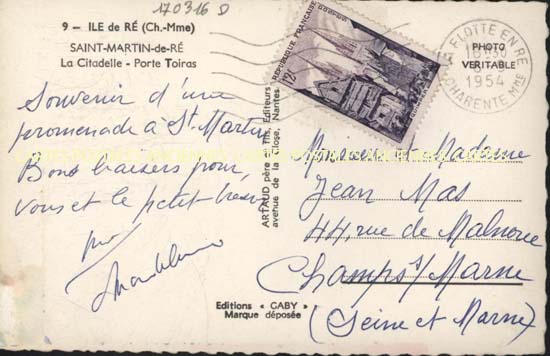 170316 D
9 - ILE de RÉ (Ch.-Mme)
SAINT-MARTIN-de-RÉ
La Citadelle - Porte Toiras
Souvenir d'une
promenade à St Martin
Bons baisers pour
vous et le petit
ARTAUD père et fils, Editeurs
avenue de la Close, Nantes
Editions « GABY »
Marque déposée
REPUBLIQUE FRANÇAISE
12F
LA FLOTTE EN RE
18H30
1954
CHARENTE Mme
PHOTO
VERITABLE
Monsieur et Madame
Jean Mas
44, rue de Malnoue
Champs s/ Marne
(Seine et Marne)